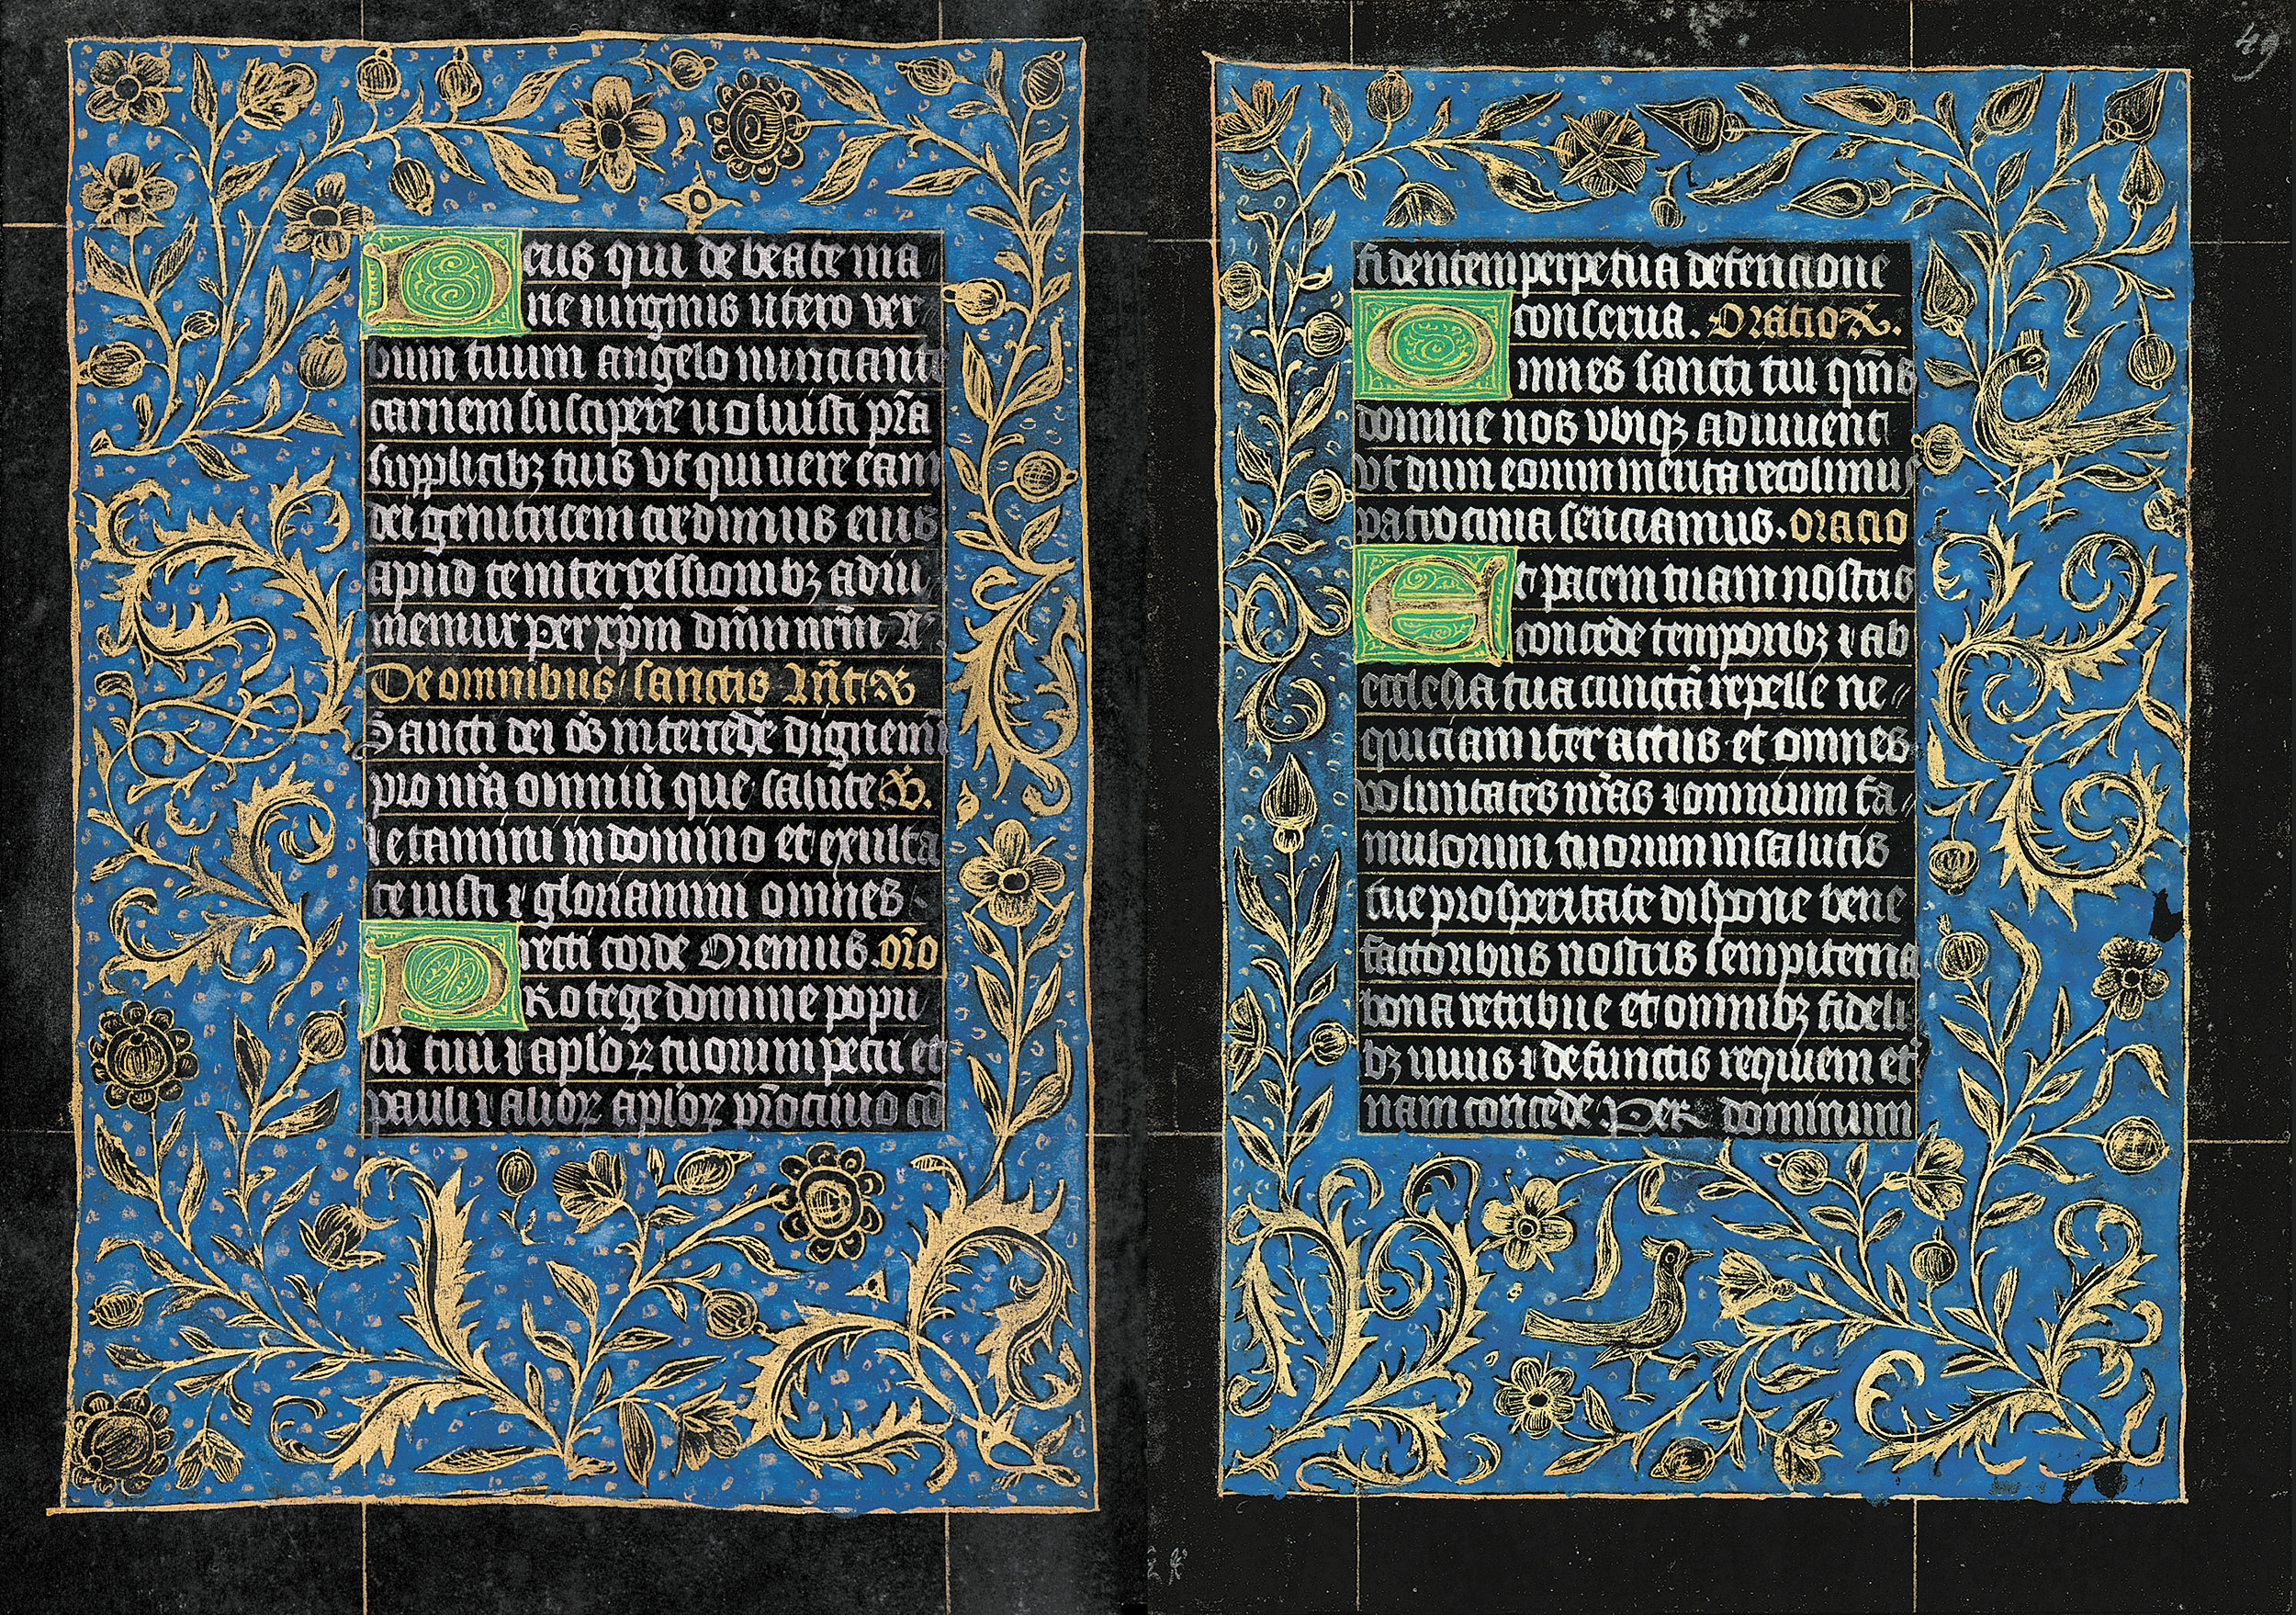 Deus qui de beate ma
rie virginis utero ver
bum tuum angelo nunciante
carnem suscipere voluisti p̃ta
supplicibꝫ tuis vt qui vere eam
dei genitricem credimus eius
apud te intercessionibꝫ adiu
vemur per xp̃m dñm nr̃m A
De omnibus sanctis Añt
Sancti dei õs intercede dignemi
pro nr̃a omniũ que salute ℣.
letamini in domino et exulta
te iusti ⁊ gloriamini omnes
recti corde Oremus. or̃o
PRotege domine popu
lũ tuũ ⁊ apl'oꝝ tuorum petri et
pauli ⁊ alioꝝ apl'oꝝ pr̃ocinio cõ
49
fidentem perpetua defencione
conserva. Oratio
Omnes sancti tui qm̃s
domine nos vbiqꝫ adiuvent
vt dum eorum merita recolimus
patrocinia senciamus. oracio
Et pacem tuam nostris
concede temporibꝫ ⁊ ab
ecclesia tua cunctã repelle ne
quiciam iter actus et omnes
voluntates nr̃as ⁊ omnium fa
mulorum tuorum in salutis
tue prosperitate dispone bene
factoribus nostris sempiterna
bona retribue et omnibꝫ fideli
bꝫ vivis ⁊ defunctis requiem et̃
nam concede Per dominum